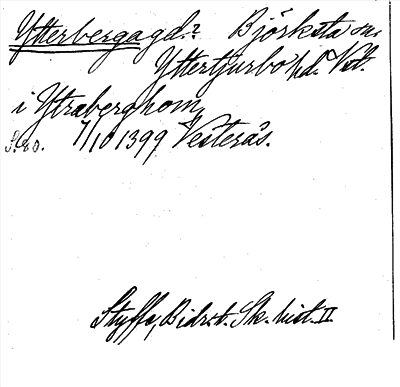 Ytterbergagd.? Björksta sn.
Yttertjurbo hd. Vstl.
i Ytraberghom,
S. 80. 7/10 1399 Vesterås.
Styffe, Bidr. t. Sk. hist. II